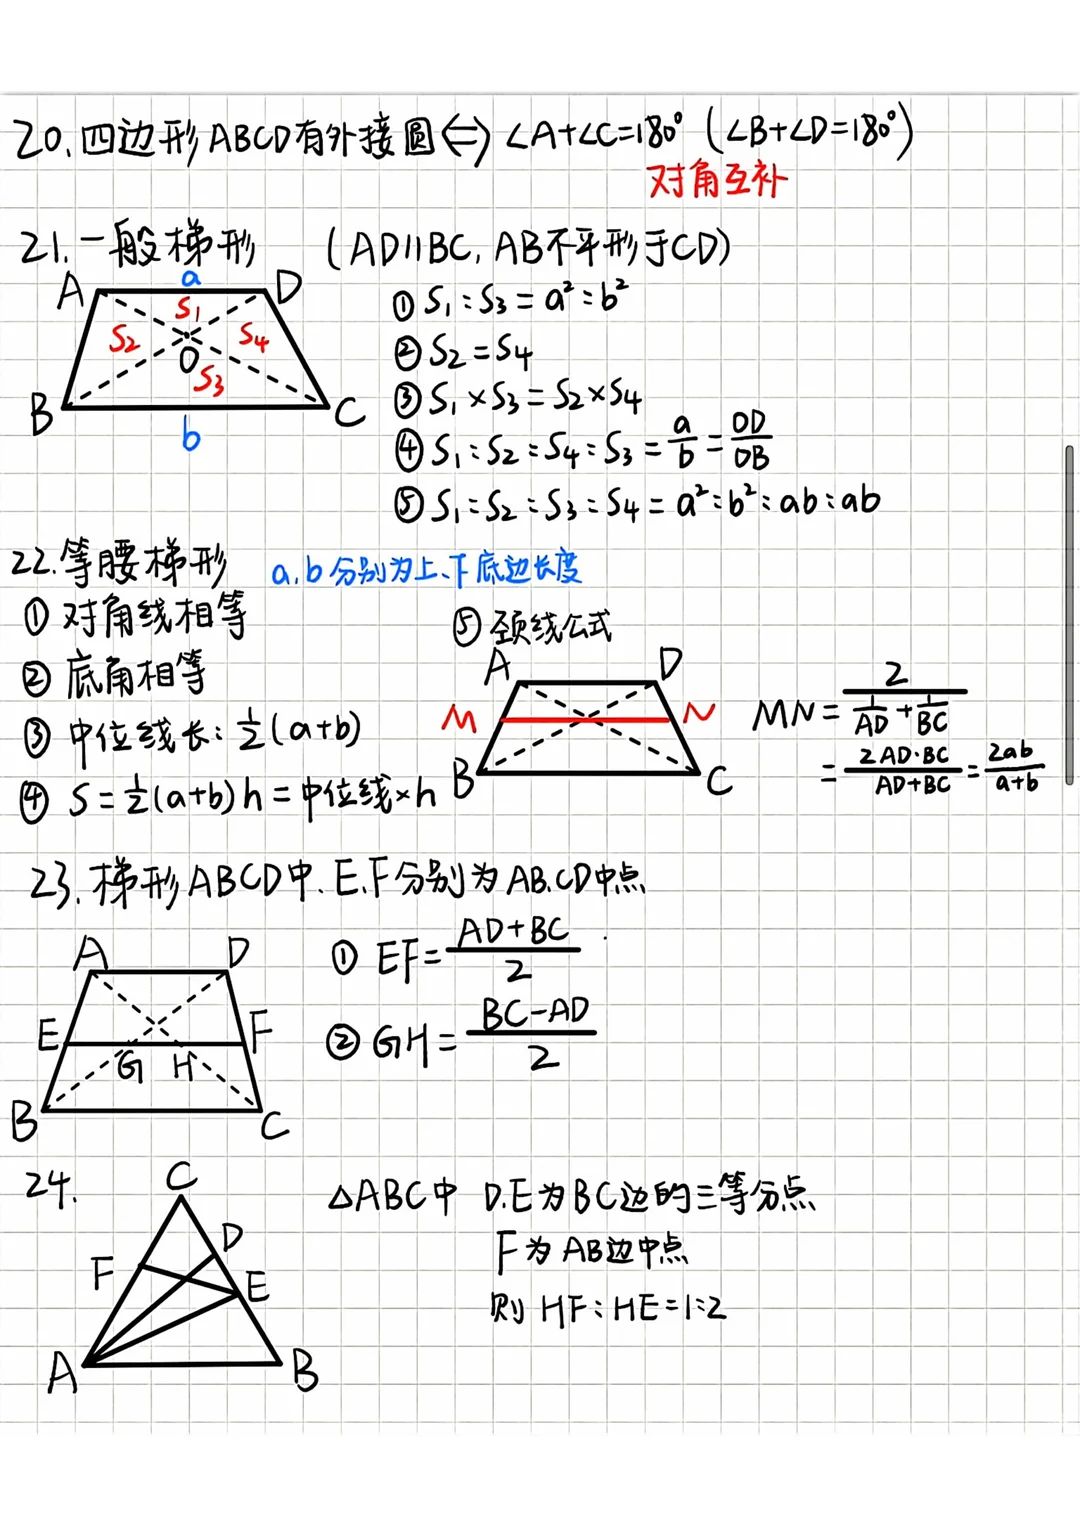 20.四边形ABCD有外接圆⟺∠A+∠C=180°(∠B+∠D=180°)
对角互补
21.一般梯形 (AD∥BC,AB不平形于CD)
A a D
S₁
S₂ S₄
O
S₃
B C
b
①S₁:S₃=a²:b²
②S₂=S₄
③S₁×S₃=S₂×S₄
④S₁:S₂=S₄:S₃=a/b=OD/OB
⑤S₁:S₂:S₃:S₄=a²:b²:ab:ab
22.等腰梯形 a,b分别为上、下底边长度
①对角线相等
②底角相等
③中位线长:½(a+b)
④S=½(a+b)h=中位线×h
⑤颈线公式
A D
M N
B C
MN=2/(1/AD+1/BC)
=2AD·BC/(AD+BC)=2ab/(a+b)
23.梯形ABCD中.E.F分别为AB.CD中点
A D
E F
G H
B C
①EF=(AD+BC)/2
②GH=(BC-AD)/2
24.
C
D
F
E
A B
△ABC中 D.E为BC边的三等分点
F为AB边中点
则HF:HE=1:2